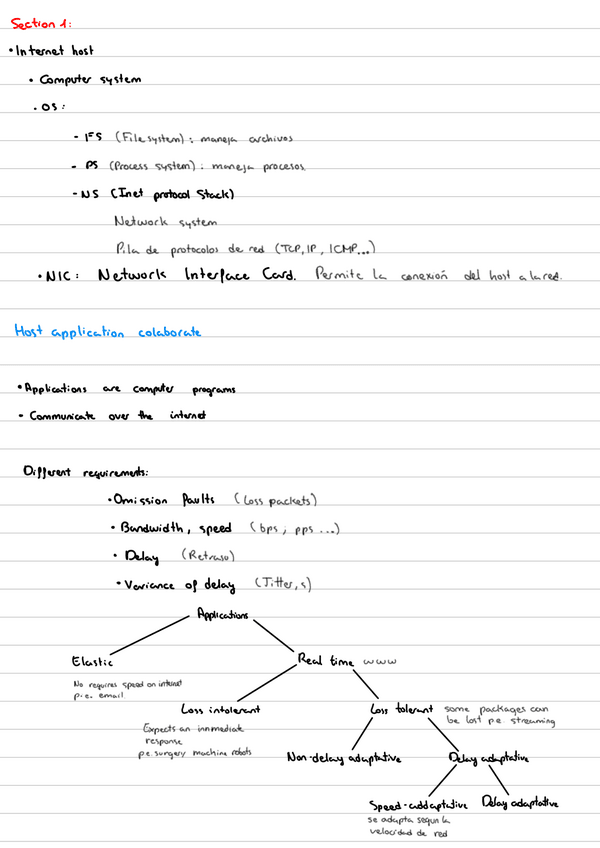 Section 1:
• Internet host
• Computer system
• OS:
- FS (File system): maneja archivos
- PS (Process system): maneja procesos
- NS (Inet protocol Stack)
Network system
Pila de protocolos de red (TCP, IP, ICMP...)
• NIC: Network Interface Card. Permite la conexión del host a la red.
Host application colaborate
• Applications are computer programs
• Communicate over the internet
Different requirements:
• Omission faults (Loss packets)
• Bandwidth, speed (bps; pps ...)
• Delay (Retraso)
• Variance of delay (Jitter, s)
Applications
Elastic
Real time www
No requires speed on internet
p.e. email
Loss intolerant
Loss tolerant some packages can
be lost p.e. streaming
Expects an inmediate
response
p.e. surgery machine robots
Non-delay adaptative
Delay adaptative
Speed-addaptative
Delay adaptative
se adapta segun la
velocidad de red